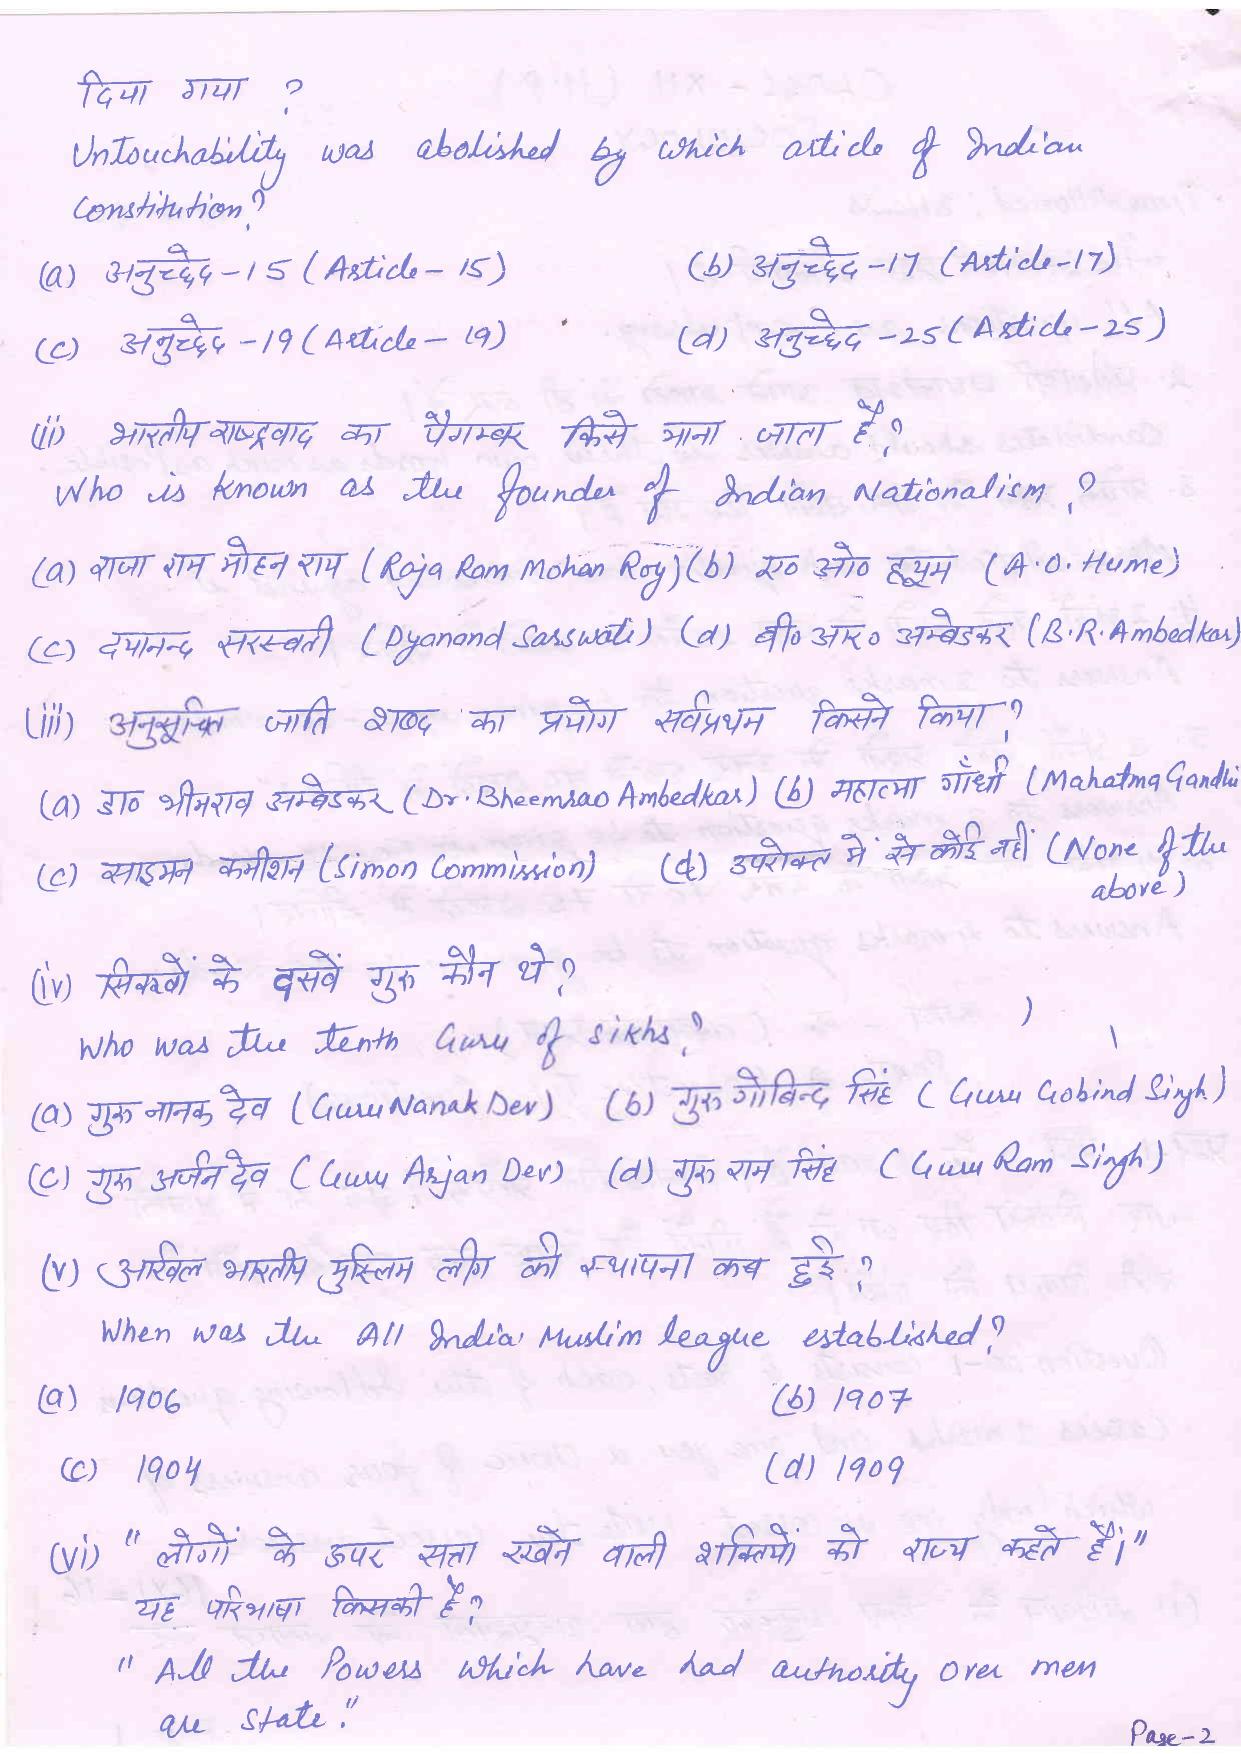 दिया गया ?
Untouchability was abolished by which article of Indian
Constitution?
(a) अनुच्छेद -15 (Article - 15) (b) अनुच्छेद -17 (Article-17)
(c) अनुच्छेद -19 (Article - 19) (d) अनुच्छेद -25 (Article -25)
(ii) भारतीय राष्ट्रवाद का पैगम्बर किसे माना जाता है ?
Who is known as the founder of Indian Nationalism ?
(a) राजा राम मोहन राय (Raja Ram Mohan Roy) (b) ए० ओ० ह्यूम (A.O. Hume)
(c) दयानन्द सरस्वती (Dyanand Sarswati) (d) बी० आर० अम्बेडकर (B.R. Ambedkar)
(iii) अनुसूचित जाति शब्द का प्रयोग सर्वप्रथम किसने किया ?
(a) डा० भीमराव अम्बेडकर (Dr. Bheemrao Ambedkar) (b) महात्मा गाँधी (Mahatma Gandhi
(c) साइमन कमीशन (Simon Commission) (d) उपरोक्त में से कोई नहीं (None of the
above)
(iv) सिक्खों के दसवें गुरु कौन थे ?
Who was the tenth Guru of Sikhs ?
(a) गुरु नानक देव (Guru Nanak Dev) (b) गुरु गोबिन्द सिंह (Guru Gobind Singh)
(c) गुरु अर्जन देव (Guru Arjan Dev) (d) गुरु राम सिंह (Guru Ram Singh)
(v) अखिल भारतीय मुस्लिम लीग की स्थापना कब हुई ?
When was the All India Muslim league established ?
(a) 1906 (b) 1907
(c) 1904 (d) 1909
(vi) " लोगों के उपर सत्ता रखने वाली शक्तियों को राज्य कहते हैं।"
यह परिभाषा किसकी है ?
" All the Powers which have had authority over men
are State."
Page-2